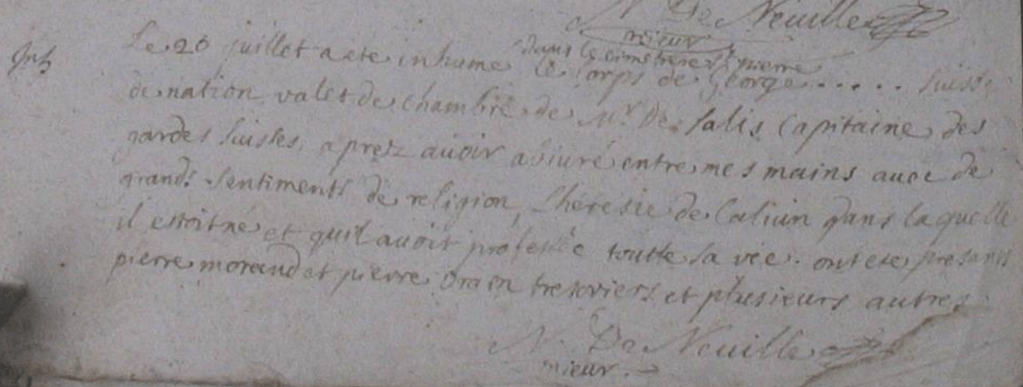 N. De Neuille
prieur
Inh
dans le cimetiere St pierre
Le 20 juillet a ete inhumé le Corps de George ..... suisse
de nation valet de chambre de Mr. De Salis Capitaine des
gardes suisses, aprez auoir abiuré entre mes mains auec de
grands sentiments de religion, Lheresie de Caluin dans laquelle
il estoit né et quil auoit professée toutte sa vie. ont eté presents
pierre morand et pierre tresoriers et plusieurs autres
N. De Neuille
prieur.